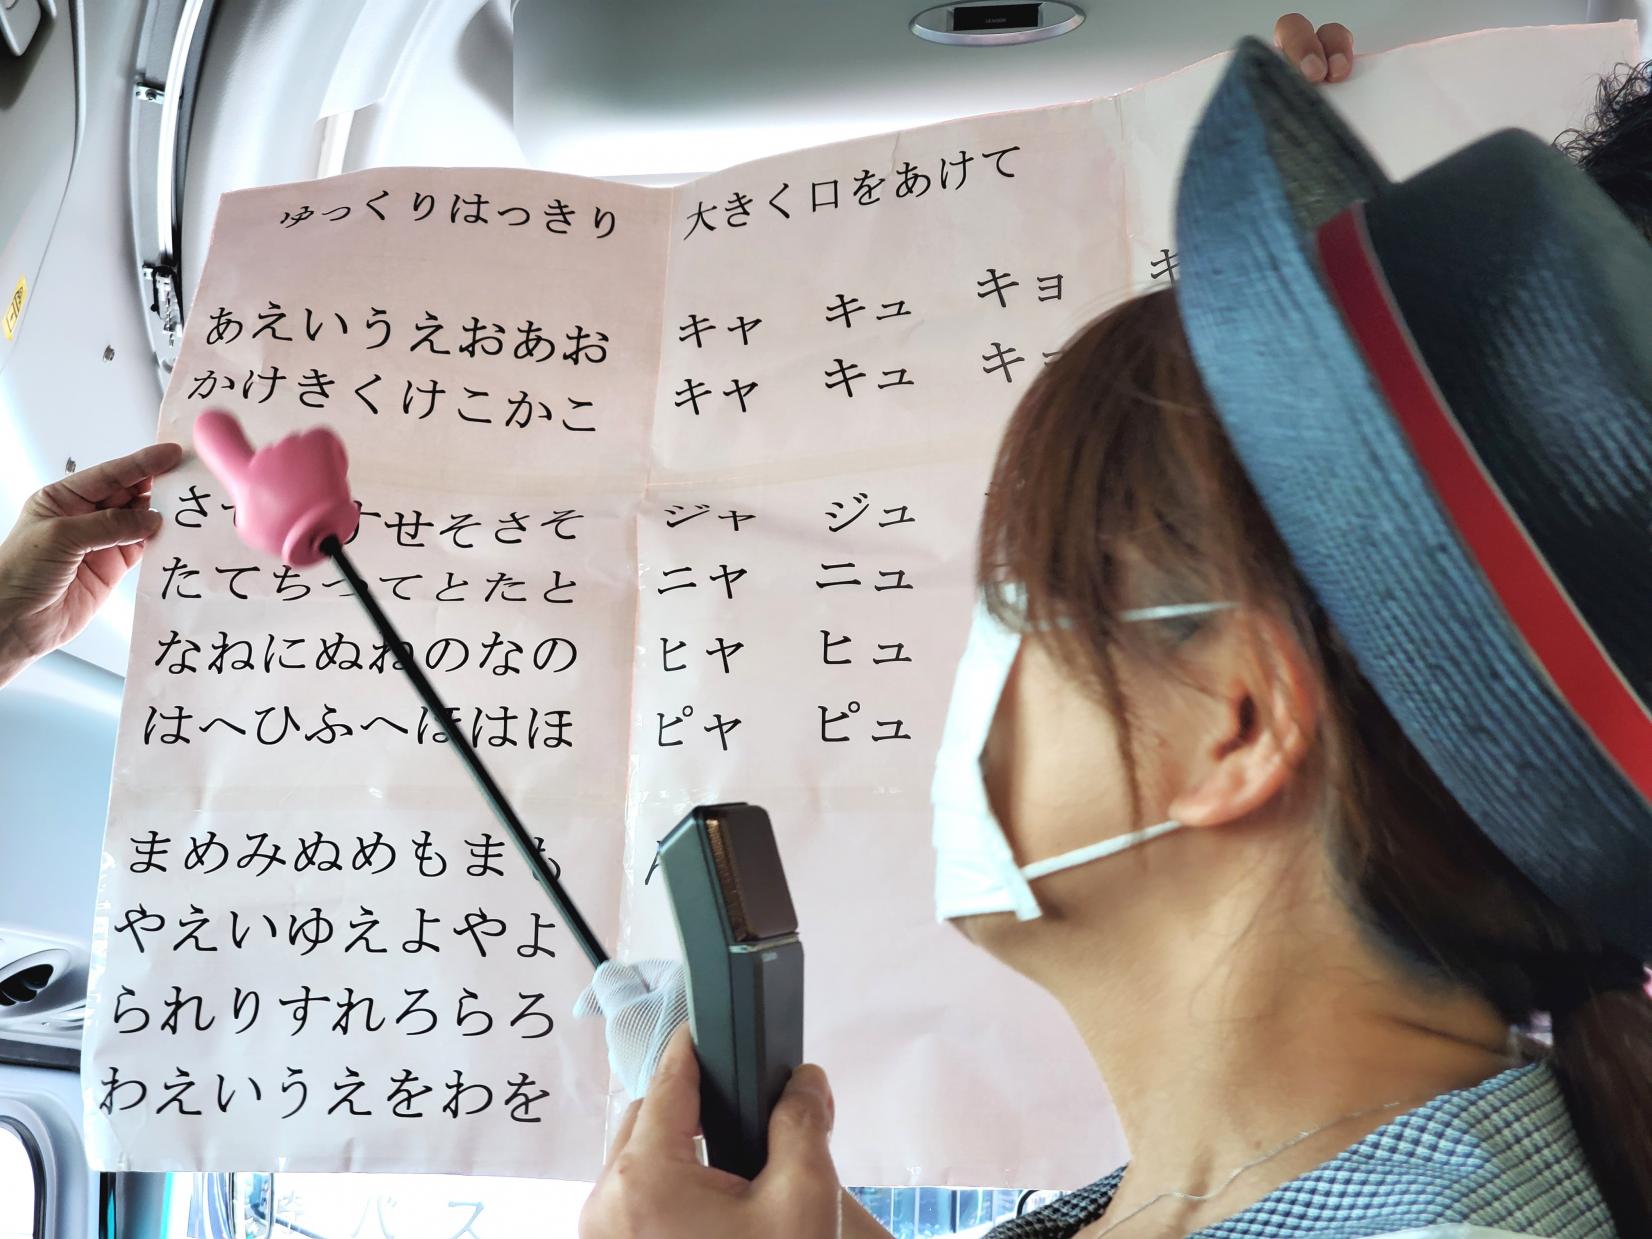 ゆっくりはっきり
あえいうえおあお
かけきくけこかこ
さ せそさそ
たてちってとたと
なねにぬねのなの
はへひふへほはほ
まめみぬめもまも
やえいゆえよやよ
られりすれろらろ
わえいうえをわを
大きく口をあけて
キャ キュ キョ
キャ キュ
ジャ ジュ
ニャ ニュ
ヒャ ヒュ
ピャ ピュ
バス